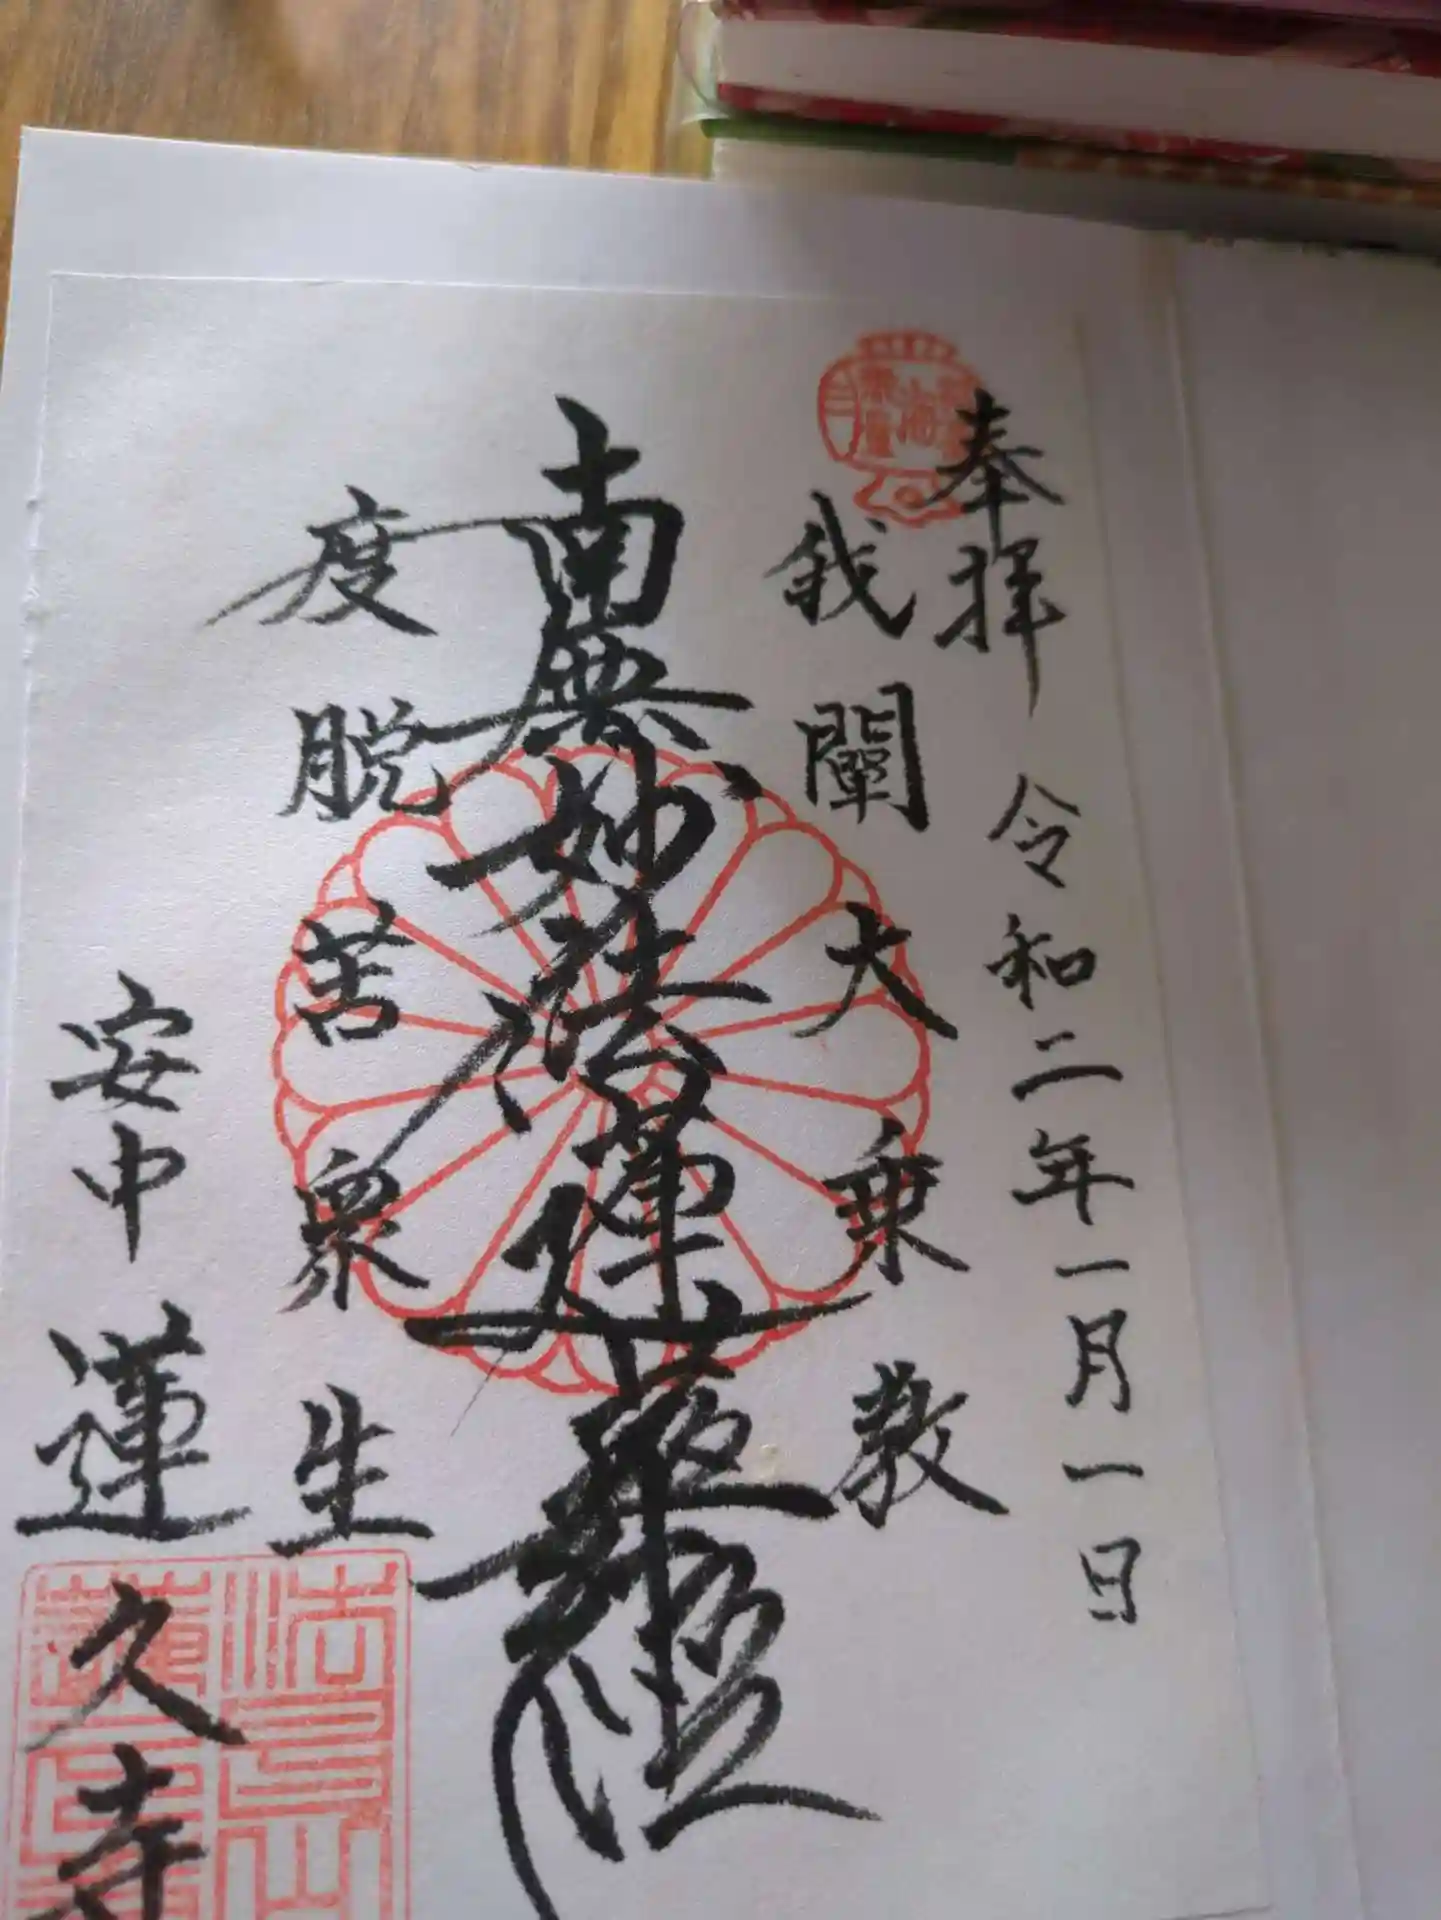 奉拝
令和二年一月一日
我闡大乗教
南無妙法蓮華経
度脱苦衆生
安中
蓮久寺